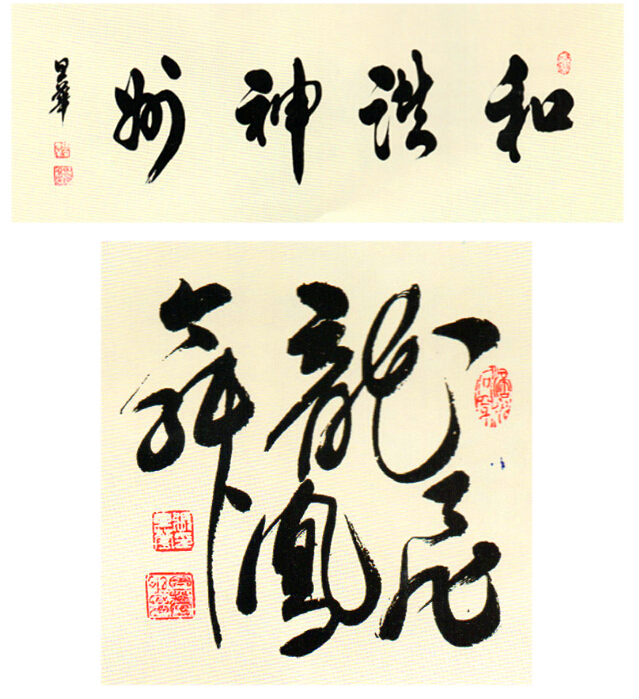 和谐神州
華
龍飛
鳳
舞